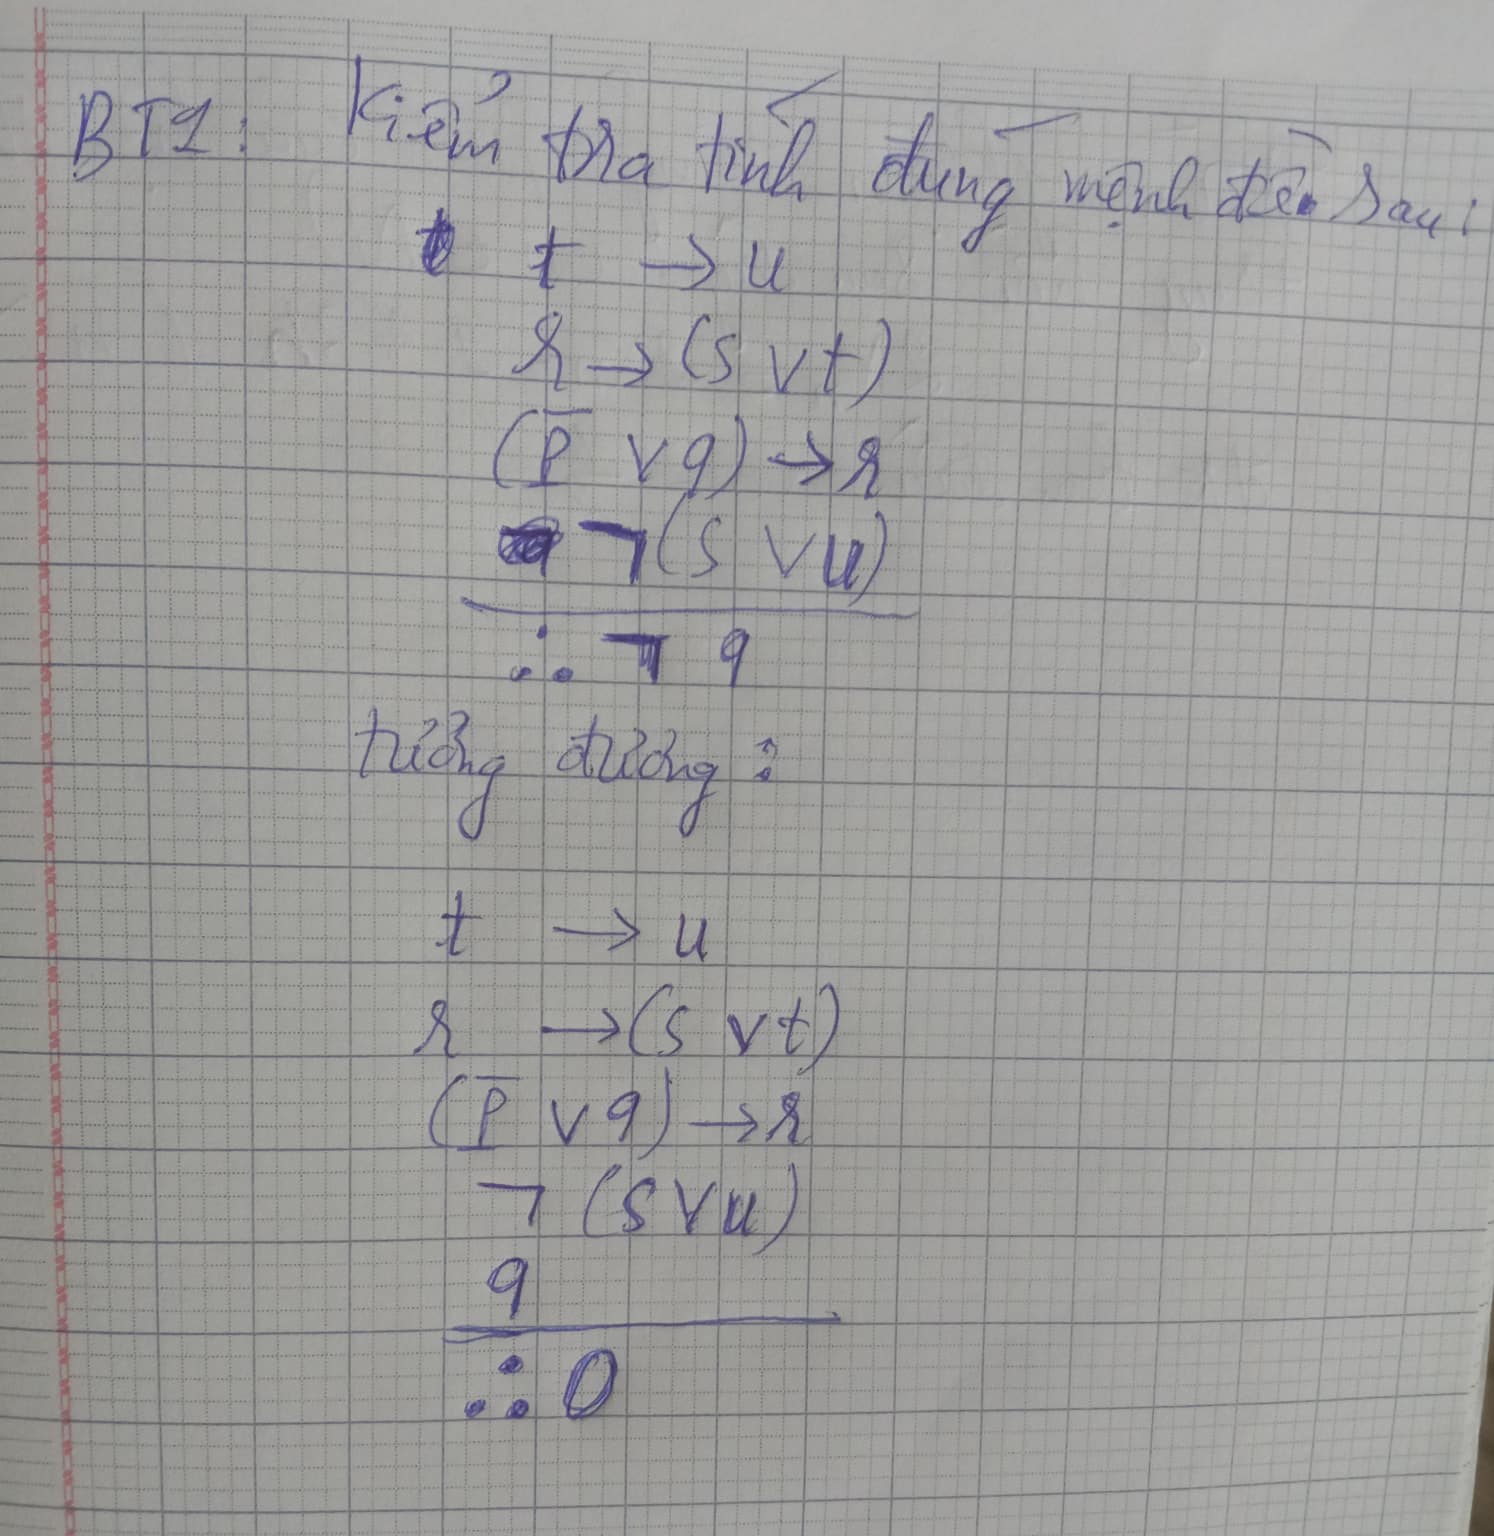 BT1: Kiểm tra tính đúng mệnh đề sau:
t → u
r → (s ∨ t)
(p̅ ∨ q) → r
¬(s ∨ u)
∴ ¬ q
tương đương :
t → u
r → (s ∨ t)
(p̅ ∨ q) → r
¬ (s ∨ u)
q
∴ 0